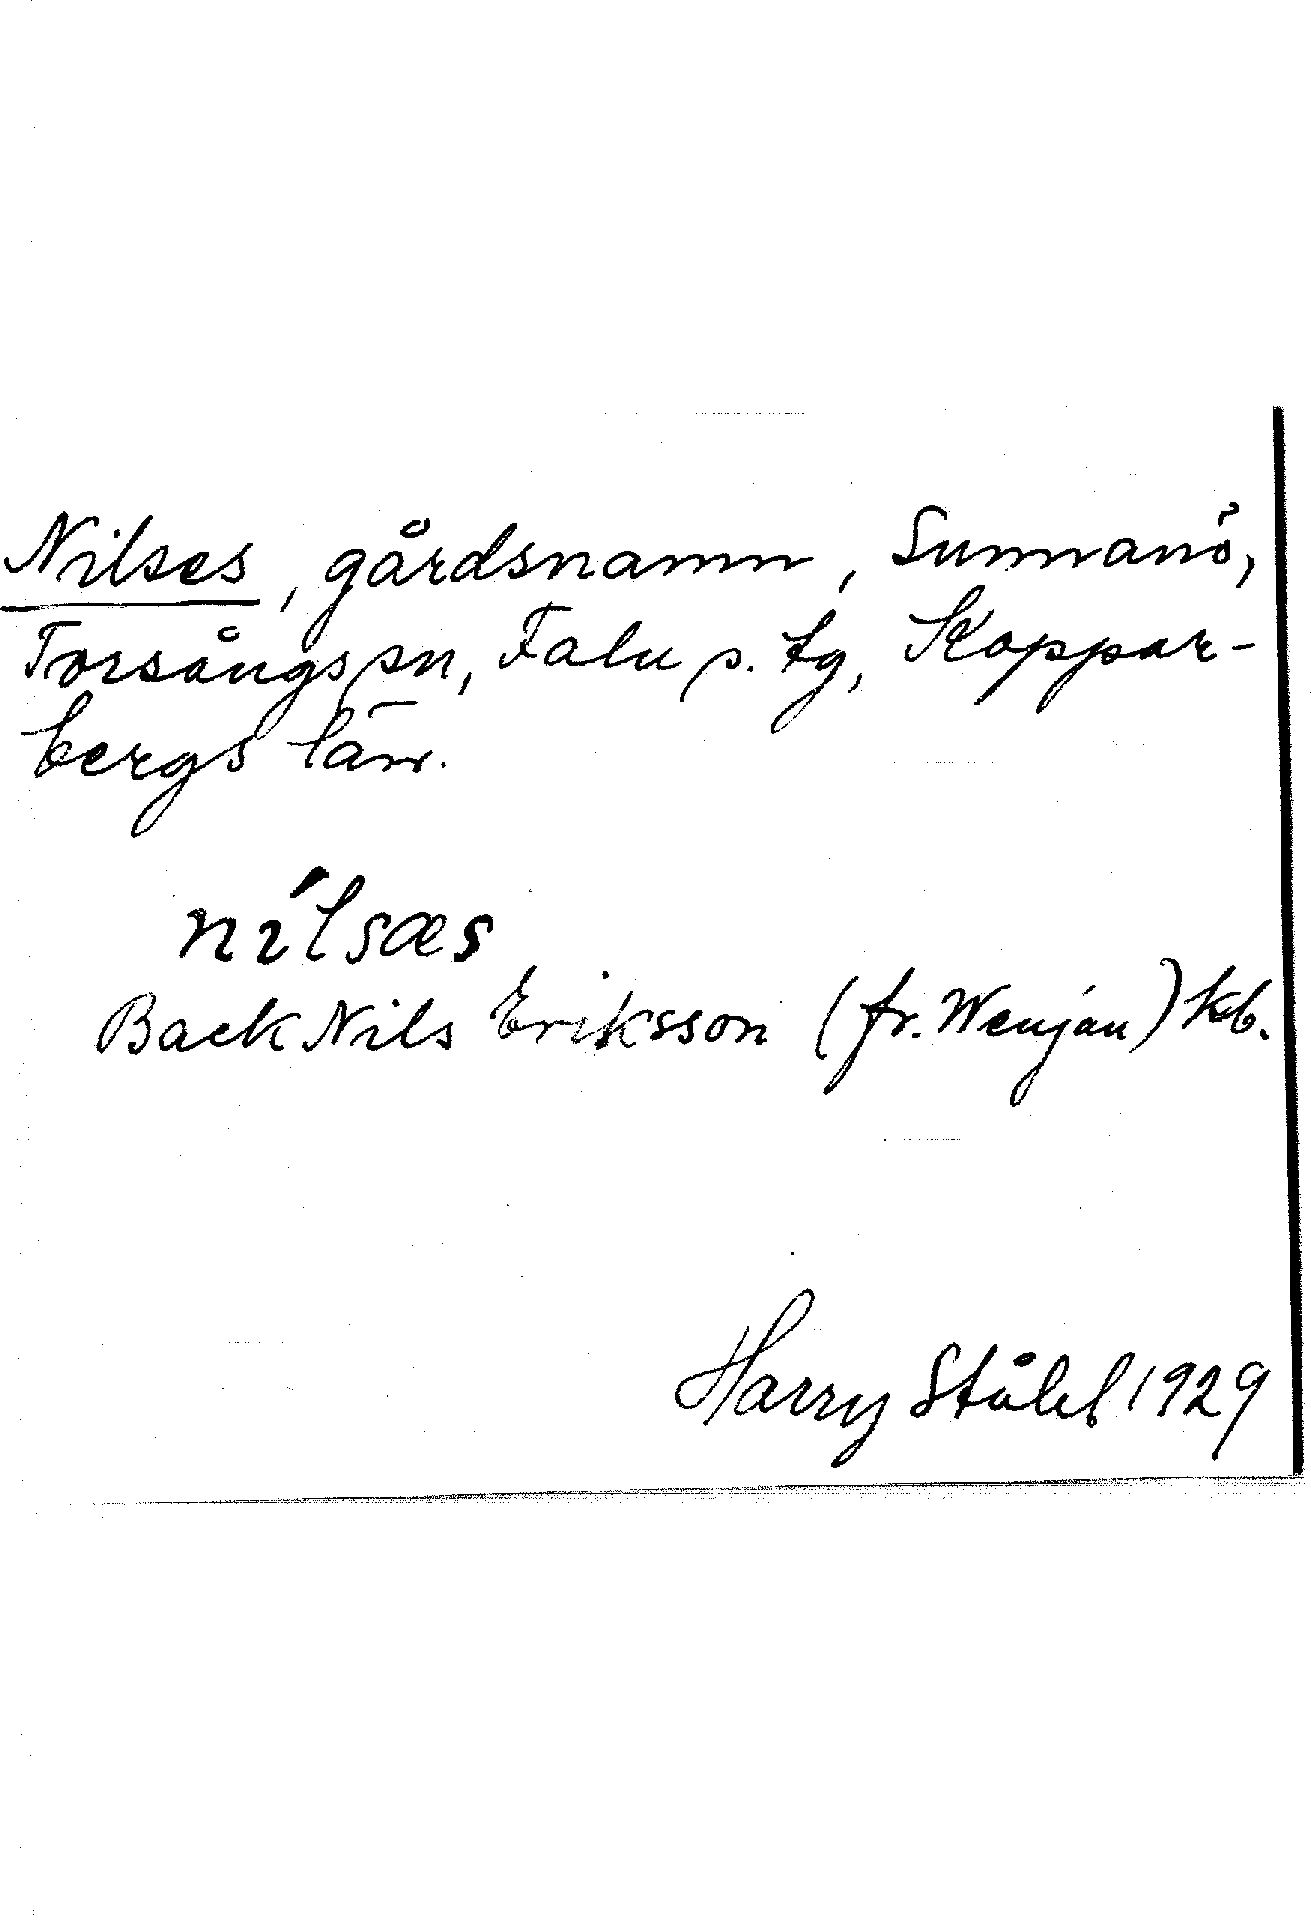 Nilses, gårdsnamn, Sunnanö,
Torsångs sn, Falu s. tg, Koppar-
bergs län.
nílsæs
Back Nils Eriksson (fr. Wenjan) kb.
Harry Ståhl 1929